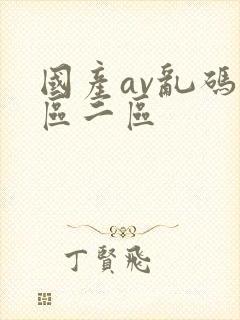 國產av亂碼
區二區
丁賢飛